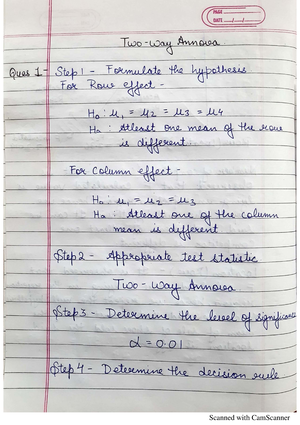 PAGE
DATE
Two-Way Annova
Ques 1- Step 1 - Formulate the hypothesis
For Row effect -
H₀ : μ₁ = μ₂ = μ₃ = μ₄
Ha : Atleast one mean of the row
is different
For Column effect -
H₀ : μ₁ = μ₂ = μ₃
Ha : Atleast one of the column
mean is different
Step 2 - Appropriate test statistic
Two-Way Annova
Step 3 - Determine the level of significance
α = 0.01
Step 4 - Determine the decision rule
Scanned with CamScanner